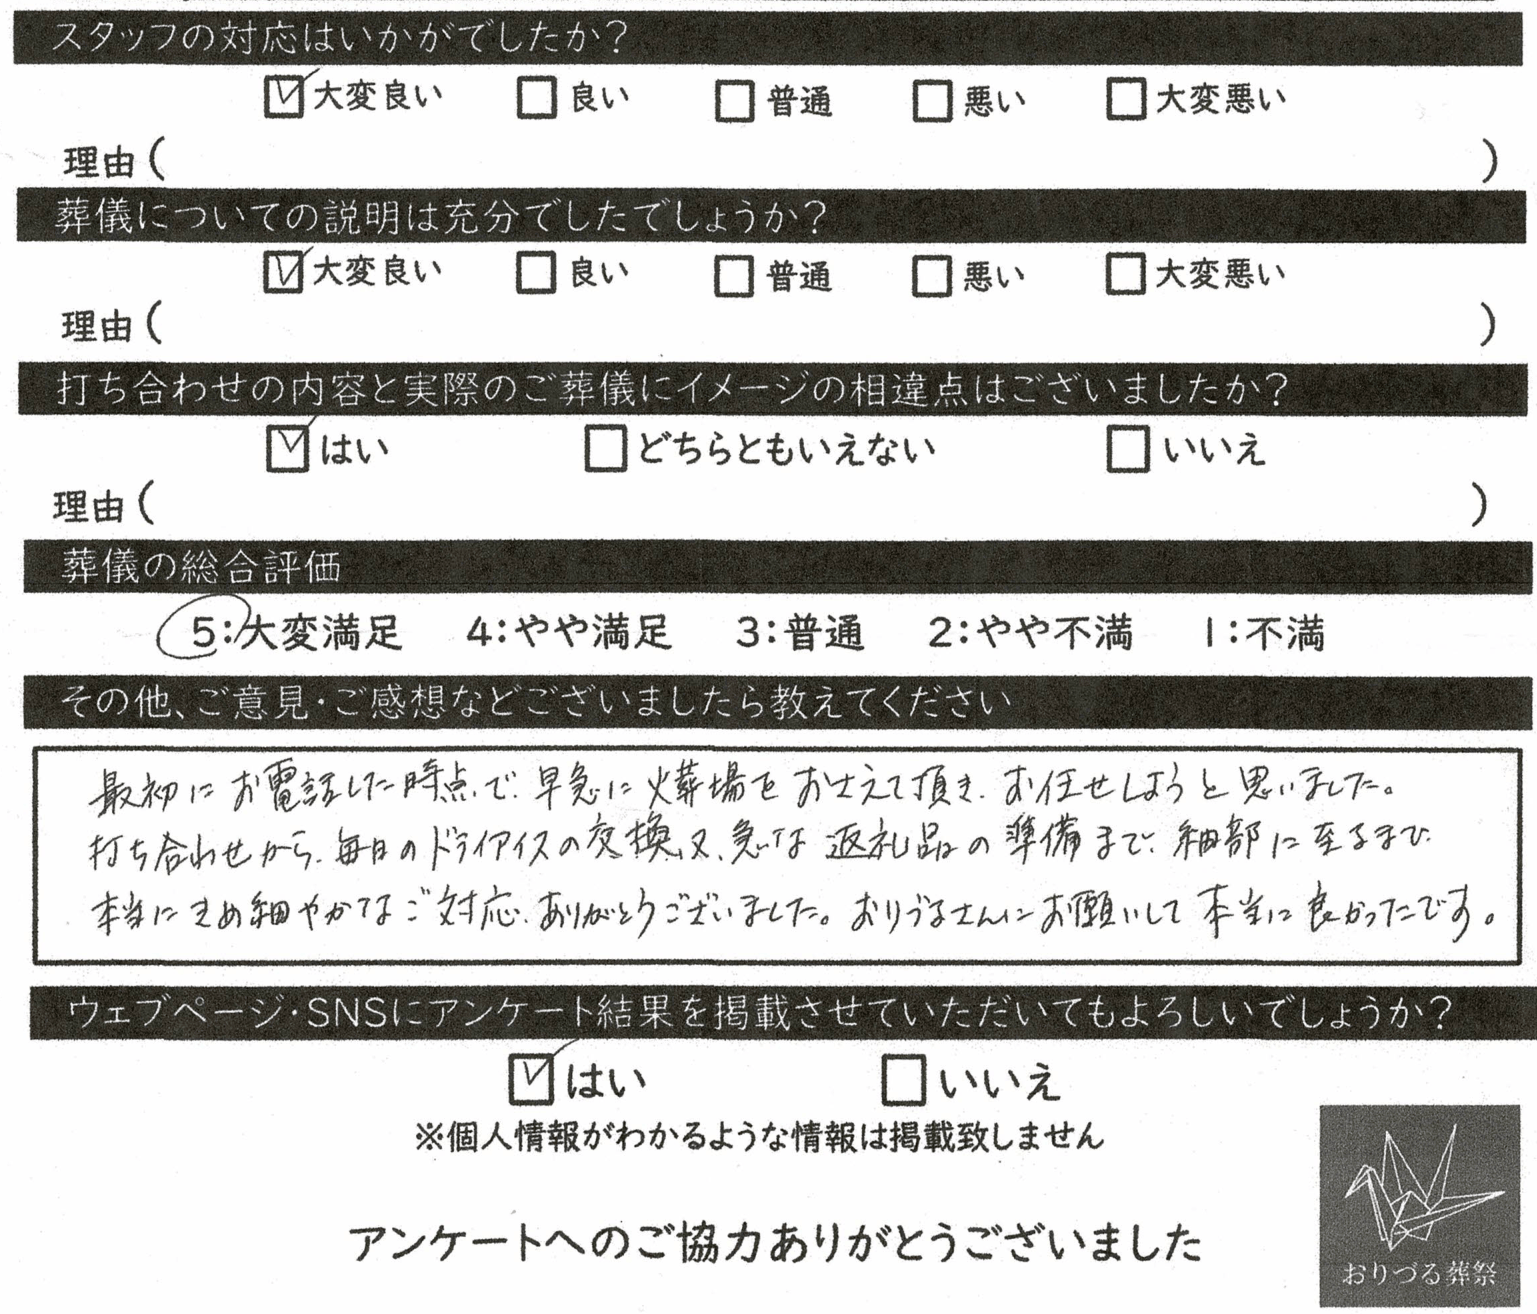 スタッフの対応はいかがでしたか?
大変良い 良い 普通 悪い 大変悪い
理由( )
葬儀についての説明は充分でしたでしょうか?
大変良い 良い 普通 悪い 大変悪い
理由( )
打ち合わせの内容と実際のご葬儀にイメージの相違点はございましたか?
はい どちらともいえない いいえ
理由( )
葬儀の総合評価
5:大変満足 4:やや満足 3:普通 2:やや不満 1:不満
その他、ご意見・ご感想などございましたら教えてください
最初にお電話した時点で、早急に火葬場をおさえて頂き、お任せしようと思いました。
打ち合わせから、毎日のドライアイスの交換、又、急な返礼品の準備まで、細部に至るまで
本当にきめ細やかなご対応、ありがとうございました。おりづるさんにお願いして本当に良かったです。
ウェブページ・SNSにアンケート結果を掲載させていただいてもよろしいでしょうか?
はい いいえ
※個人情報がわかるような情報は掲載致しません
アンケートへのご協力ありがとうございました
おりづる葬祭